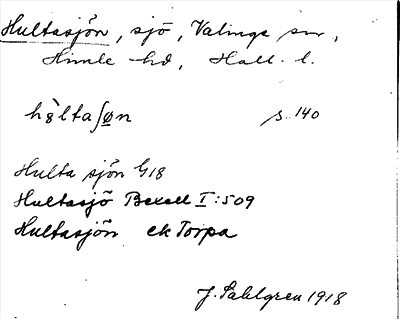 Hultasjön, sjö, Valinge sn,
Himle hd, Hall. l.
hɞ̀ltaʃøn s. 140
Hulta sjön G18
Hultasjö Bexell I:509
Hultasjön ek Torpa
J. Sahlgren 1918